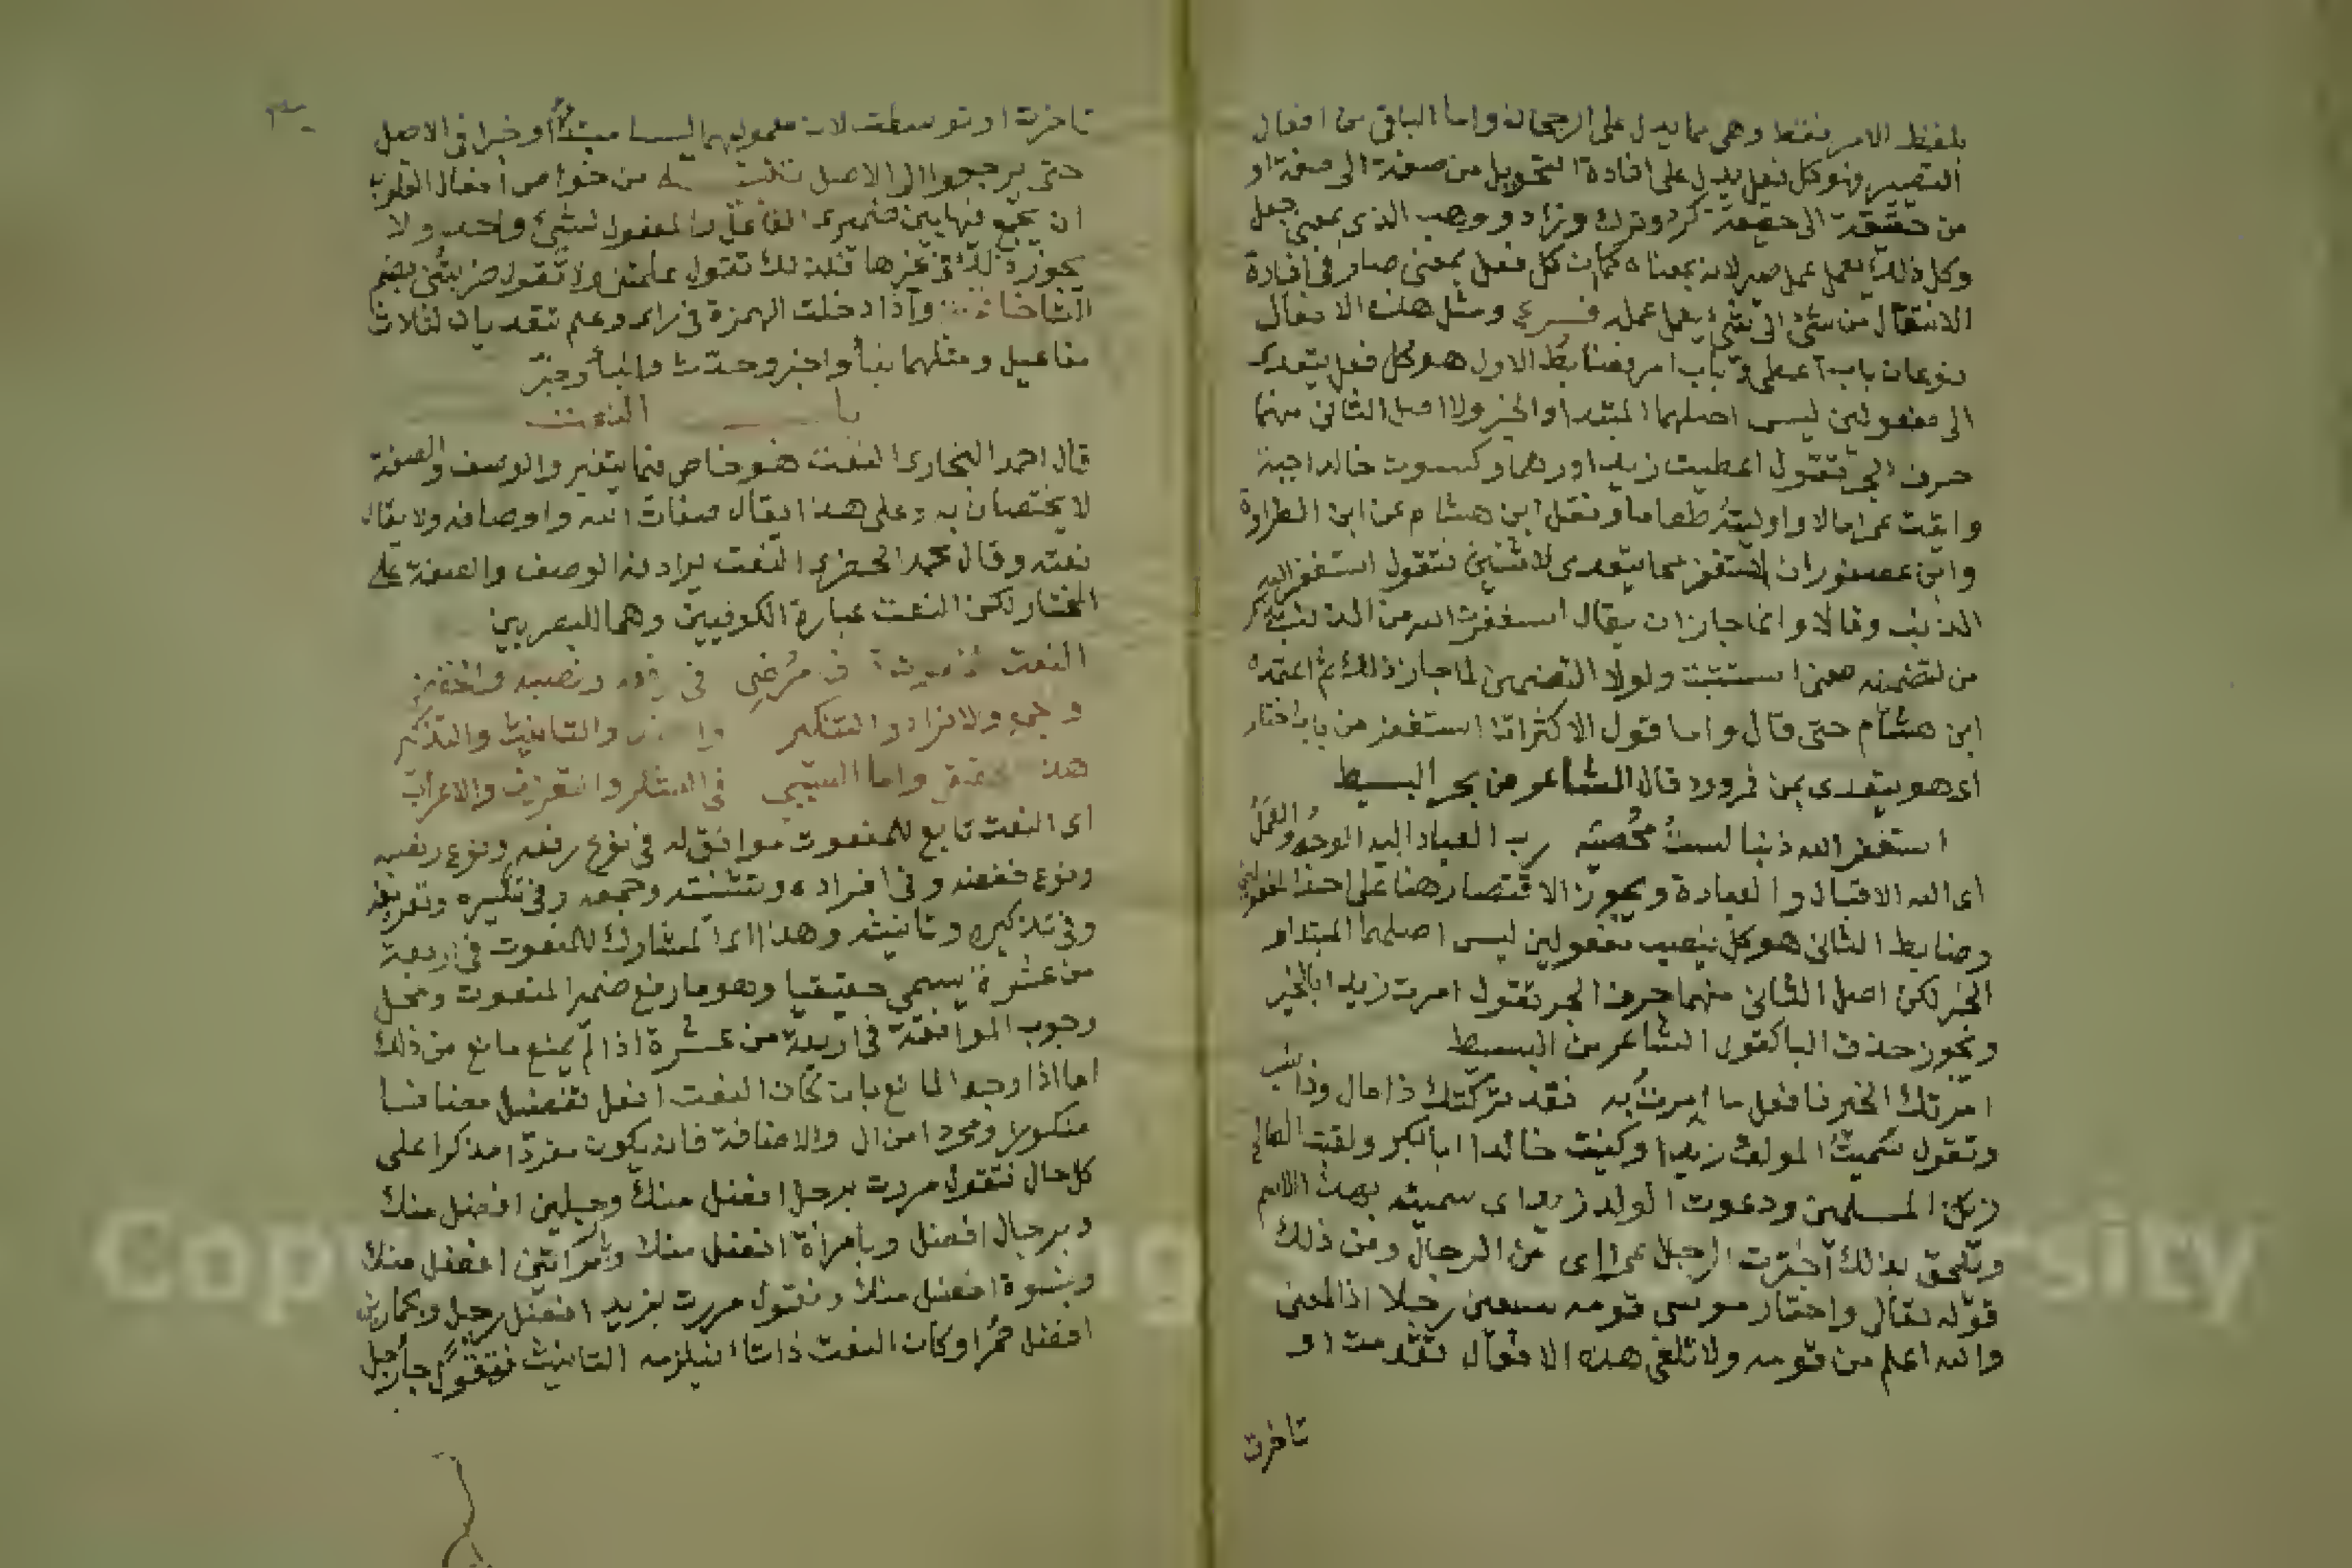 بلفظ الامر فقط وهي مما يدل على الرجحان واما الباقي من افعال
التصيير فهو كل فعل يدل على افادة التحويل من صفة الى صفة او
من حقيقة الى حقيقة كرد وترك وزاد ووهب الذي بمعنى جعل
وكل ذلك يعمل عمل صير لانه بمعناه كما ان كل فعل بمعنى صار في افادة
الانتقال من شئ الى شئ يعمل عمله فرع ومثل هذه الافعال
نوعان باب اعطى وباب امر فضابط الاول هو كل فعل يتعدى
الى مفعولين ليس اصلهما المبتدا والخبر ولا اصل الثاني منهما
حرف الجر فتقول اعطيت زيدا درهما وكسوت خالدا جبة
واتيت عمرا مالا واوليته طعاما ونقل ابن هشام عن ابن الطراوة
وابن عصفور ان استغفر مما يتعدى لاثنين فتقول استغفر الله
الذنب وقالا وانما جاز ان يقال استغفرت الله من الذنب بذكر
من لتضمنه معنى استتبت ولولا التضمين لما جاز ذلك ثم اعتمده
ابن هشام حتى قال واما قول الاكثر ان استغفر من باب اختار
اي هو يتعدى بمن فمردود قال الشاعر من بحر البسيط
استغفر الله ذنبا لست محصيه رب العباد اليه الوجه والعمل
اى الله الاقبال والعبادة ويجوز الاقتصار هنا على احد المفعولين
وضابط الثاني هو كل ينصب مفعولين ليس اصلهما المبتدا و
الخبر لكن اصل الثاني منهما حرف الجر تقول امرت زيدا بالخير
ويجوز حذف البا كقول الشاعر من البسيط
امرتك الخير فافعل ما امرت به فقد تركتك ذا مال وذا نشب
وتقول سميت المولود زيدا وكنيت خالدا ابا بكر ولقبت العالم
زين المسلمين ودعوت الولد زيدا اى سميته بهذا الاسم
ويلحق بذلك اخترت الرجل عمرا اى من الرجال ومن ذلك
قوله تعالى واختار موسى قومه سبعين رجلا اذ المعنى
والله اعلم من قومه ولا تلغى هذه الافعال تقدمت او
تاخرت
تاخرت او توسطت لان معموليهما ليسا مبتدأ وخبرا في الاصل
حتى يرجعوا الى الاصل من خواص افعال القلوب
ان يجتمع فيها بين ضميرى الفاعل والمفعول لشئ واحد ولا
يجوز ذلك في غيرها فلذلك تقول علمتني ولا تقول ضربتني بضم
التا واذا دخلت الهمزة في راى وعلم تعديان لثلاث
مفاعيل ومثلهما نبأ واخبر وحدث وانبأ وخبر
باب النعت
قال احمد البخارى النعت هو خاص فيما يتغير والوصف والصفة
لا يختصان به وعلى هذا يقال صفات الله واوصافه ولا يقال
نعته وقال محمد الخضرى النعت يرادفه الوصف والصفة على
المختار لكن النعت عبارة الكوفيين وهما للبصريين
النعت في رفعه ونصبه وخفضه
والافراد والتنكير والتانيث والتذكير
هذا واما السببي والتعريف والاعراب
اى النعت تابع للمنعوت موافق له في نوع رفعه ونوع نصبه
ونوع خفضه وفي افراده وتثنيته وجمعه وفي تنكيره وتعريفه
وفي تذكيره وتانيثه وهذا المشارك للمنعوت في اربعة
من عشرة يسمى حقيقيا وهو ما رفع ضمير المنعوت ومحل
وجوب الموافقة في اربعة من عشرة اذا لم يمنع مانع من ذلك
اما اذا وجد المانع بان كان النعت افعل تفضيل مضافا
منكورا ومجردا من ال والاضافة فانه يكون مفردا مذكرا على
كل حال فتقول مررت برجل افضل منك وجلين افضل منك
وبرجال افضل وبامراة افضل منك وبامراتين افضل منك
وبنسوة افضل منك وتقول مررت بزيد افضل رجل وبحمارين
افضل حمر او كان النعت فيلزمه التانيث فتقول جا رجل